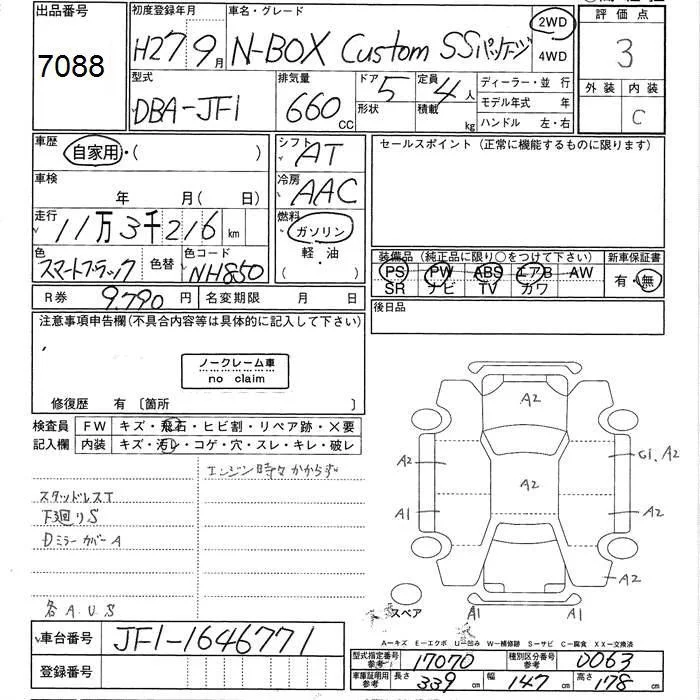 出品番号 初度登録年月 車名・グレード 2WD 評価点
7088 H27 9月 N-BOX Custom SSパッケージ 4WD 3
型式 排気量 ドア 定員 ディーラー・並 行 外装 内装
DBA-JF1 660CC 5 4人 モデル年式 年 C
形状 積載 kg ハンドル 左・右
車歴 シフト セールスポイント (正常に機能するものに限ります)
自家用・( ) AT
車検 冷房
年 月( 日) AAC
走行 燃料
11万3千216km ガソリン
色 色替 色コード 軽・油 装備品 (純正品に限り○をつけて下さい) 新車保証書
スマートブラック NH850 PS PW ABS エアB AW 有・無
SR ナビ TV カワ
R券 9,790円 名変期限 月 日 後日品
注意事項申告欄(不具合内容等は具体的に記入して下さい)
ノークレーム車
no claim
修復歴 有 〔箇所 〕
検査員 FW キズ・飛石・ヒビ割・リペア跡・×要
記入欄 内装 キズ・汚レ・コゲ・穴・スレ・キレ・破レ
エンジン時々かからず
スタッドレスT
下廻りS
Dミラーカバー A
各A.U.S
A2
A2 A2 G1.A2
A1 A2
A2
スペア A1 A1
A−キズ E−エクボ U−凹み W−補修跡 S−サビ C−腐食 XX−交換済
車台番号 JF1-1646771
登録番号
型式指定番号 参考 17070 種別区分番号 参考 0063
車庫証明用 参考 長さ 339cm 幅 147cm 高さ 178cm